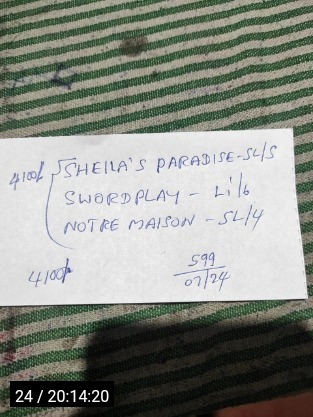 4100/- SHEILA'S PARADISE-SL/5
SWORDPLAY - Li/6
NOTRE MAISON - SL/4
4100/-
599
07/24
24 / 20:14:20